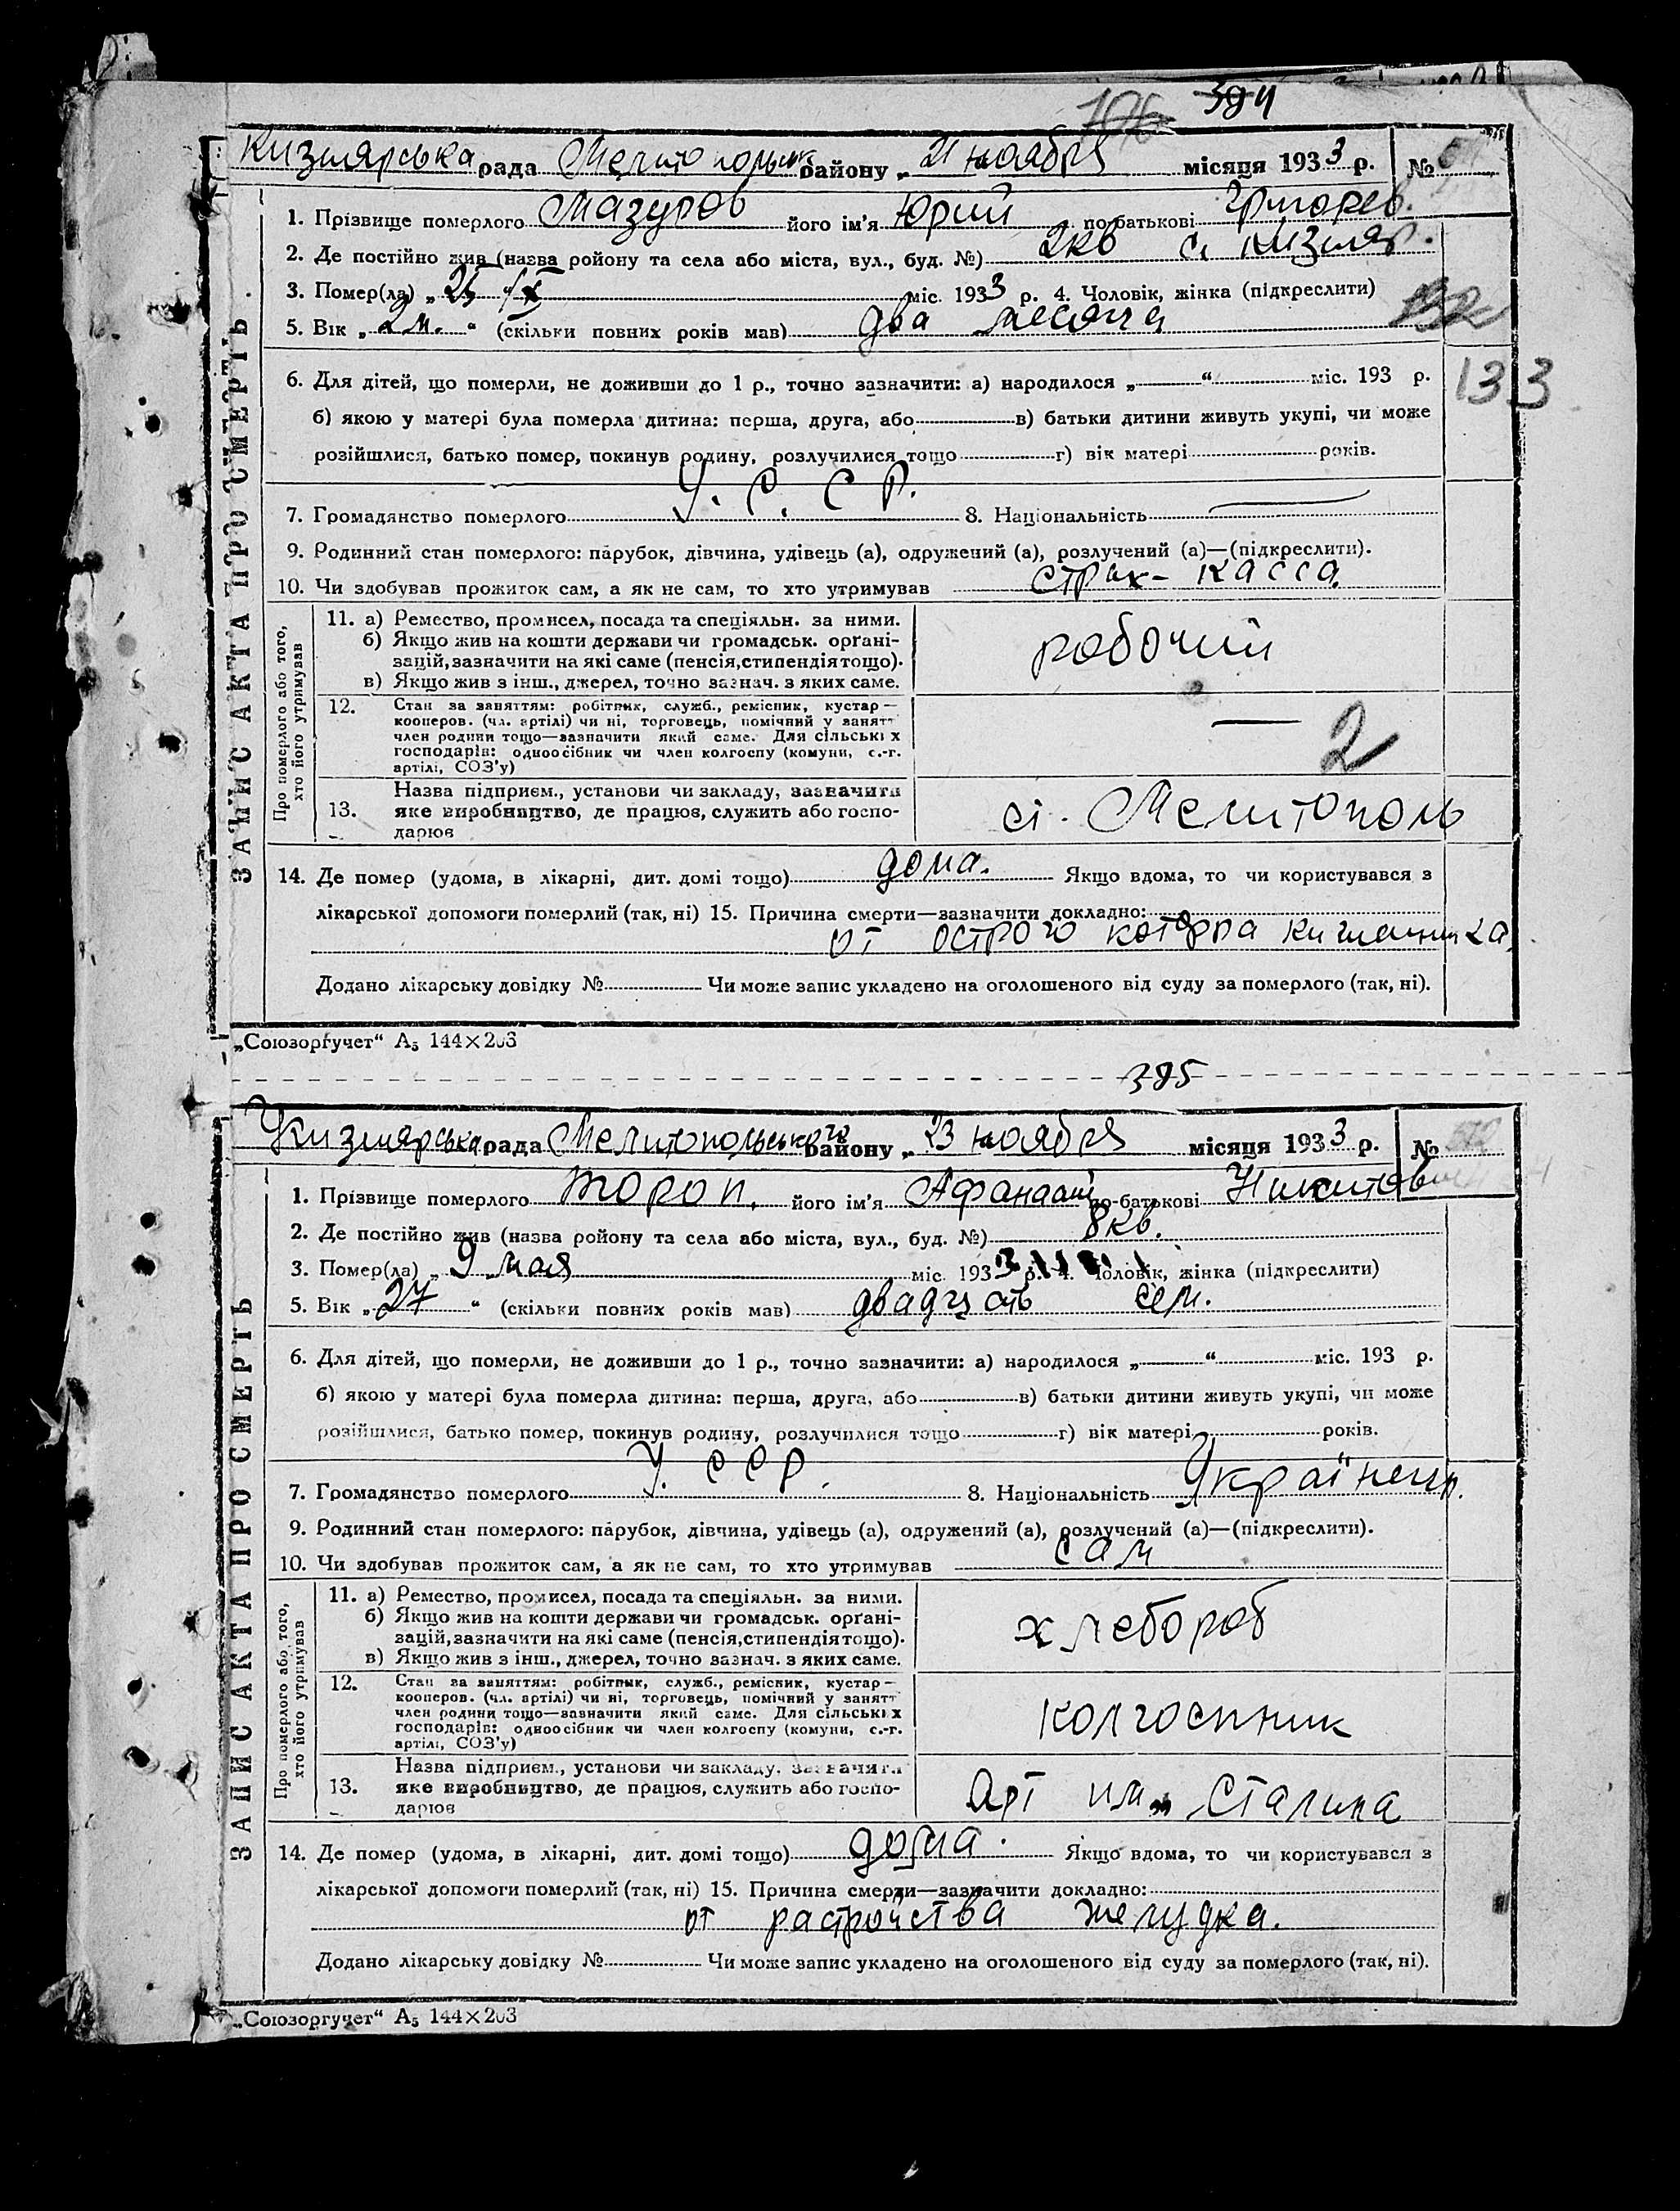 394
Кизлярська рада Мелитопольськ району „ 21 ноября місяця 1933 р. №
1. Прізвище померлого Мазуров його ім'я Юрий по батькові Григорев.
2. Де постійно жив (назва ройону та села або міста, вул., буд. №) 2кв с. Кизляр.
3. Помер(ла) „ 25 /X міс. 1933 р. 4. Чоловік, жінка (підкреслити)
5. Вік „ 2 м. “ (скільки повних років мав) два месяца
132
6. Для дітей, що померли, не доживши до 1 р., точно зазначити: а) народилося „ “ міс. 193 р.
133
б) якою у матері була померла дитина: перша, друга, або в) батьки дитини живуть укупі, чи може
розійшлися, батько помер, покинув родину, розлучилися тощо г) вік матері років.
7. Громадянство померлого У. С. С Р. 8. Національність —
9. Родинний стан померлого: парубок, дівчина, удівець (а), одружений (а), розлучений (а)—(підкреслити).
10. Чи здобував прожиток сам, а як не сам, то хто утримував страх- касса.
ЗАПИС АКТА ПРО СМЕРТЬ
Про померлого або того,
хто його утримував
11. а) Ремество, промисел, посада та спеціяльн. за ними.
б) Якщо жив на кошти держави чи громадськ. орґані-
зацій, зазначити на які саме (пенсія, стипендія тощо).
в) Якщо жив з інш., джерел, точно зазнач. з яких саме.
рабочий
12. Стан за заняттям: робітник, служб., ремісник, кустар—
кооперов. (чл. артілі) чи ні, торговець, помічний у занятт
член родини тощо—зазначити який саме. Для сільських
господарів: одноосібник чи член колгоспу (комуни, с.-г.
артілі, СОЗ'у)
— 2
13. Назва підприєм., установи чи закладу, зазначити
яке виробництво, де працює, служить або госпо-
дарює
ст. Мелитополь
14. Де помер (удома, в лікарні, дит. домі тощо) дома. Якщо вдома, то чи користувався з
лікарської допомоги померлий (так, ні) 15. Причина смерти—зазначити докладно:
от острого
Додано лікарську довідку № Чи може запис укладено на оголошеного від суду за померлого (так, ні).
„Союзорґучет“ А₅ 144×203
395
Кизлярська рада Мелитопольського району „ 23 ноября місяця 1933 р. №
1. Прізвище померлого Тороп. його ім'я Афанасий по батькові Никитов
2. Де постійно жив (назва ройону та села або міста, вул., буд. №) 8кв.
3. Помер(ла) „ 9 мая міс. 1933 р. 4. Чоловік, жінка (підкреслити)
5. Вік „ 27 “ (скільки повних років мав) двадцать сем.
6. Для дітей, що померли, не доживши до 1 р., точно зазначити: а) народилося „ “ міс. 193 р.
б) якою у матері була померла дитина: перша, друга, або в) батьки дитини живуть укупі, чи може
розійшлися, батько помер, покинув родину, розлучилися тощо г) вік матері років.
7. Громадянство померлого У. ССР. 8. Національність Українець.
9. Родинний стан померлого: парубок, дівчина, удівець (а), одружений (а), розлучений (а)—(підкреслити).
10. Чи здобував прожиток сам, а як не сам, то хто утримував сам
ЗАПИС АКТА ПРО СМЕРТЬ
Про померлого або того,
хто його утримував
11. а) Ремество, промисел, посада та спеціяльн. за ними.
б) Якщо жив на кошти держави чи громадськ. орґані-
зацій, зазначити на які саме (пенсія, стипендія тощо).
в) Якщо жив з інш., джерел, точно зазнач. з яких саме.
хлебороб
12. Стан за заняттям: робітник, служб., ремісник, кустар—
кооперов. (чл. артілі) чи ні, торговець, помічний у занятт
член родини тощо—зазначити який саме. Для сільських
господарів: одноосібник чи член колгоспу (комуни, с.-г.
артілі, СОЗ'у)
колгоспник
13. Назва підприєм., установи чи закладу, зазначити
яке виробництво, де працює, служить або госпо-
дарює
Арт им. Сталина
14. Де помер (удома, в лікарні, дит. домі тощо) дома. Якщо вдома, то чи користувався з
лікарської допомоги померлий (так, ні) 15. Причина смерти—зазначити докладно:
от растройства желудка.
Додано лікарську довідку № Чи може запис укладено на оголошеного від суду за померлого (так, ні).
„Союзоргучет“ А₅ 144×203